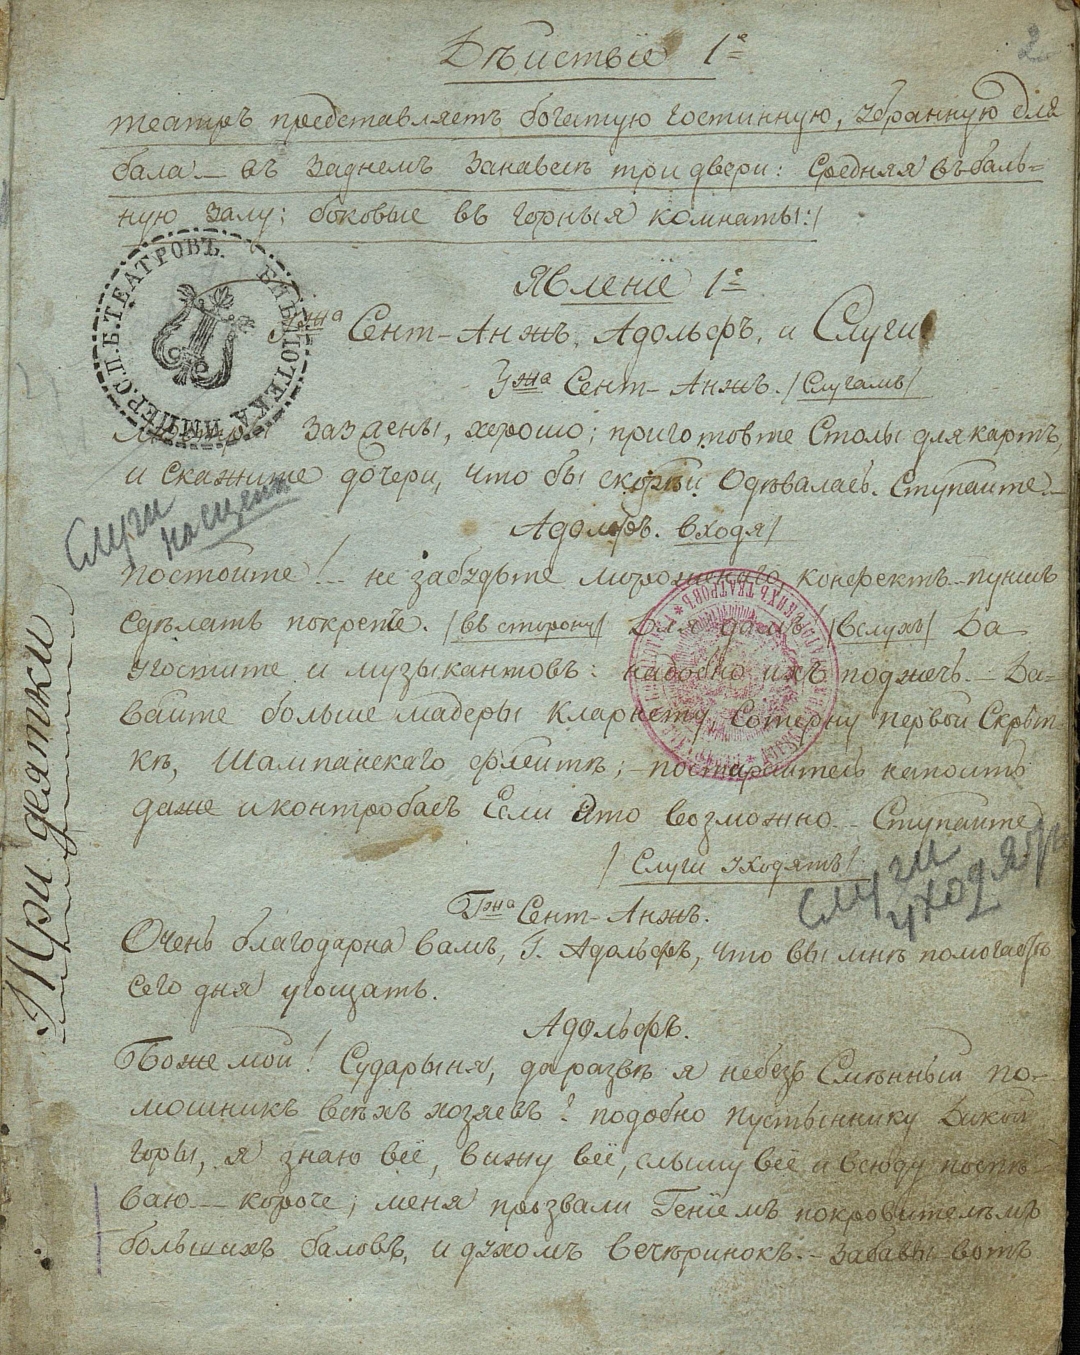 2
Дѣистіе 1е
театръ представляетъ богатую гостинную, убранную для
бала — въ заднемъ занавесѣ три двери: Средняя въ баль-
ную залу: боковые въ горныя комнаты:/
Явленіе 1е
Гжа Сент-Анжъ, Адольфъ, и Слуги
Гжа Сент-Анжъ. /Слугамъ/
хорошо; приготовте Столы для картъ,
и скажите дочери, что бы скорѣи Одѣвалась. Ступаите.—
Слуги
на сцене
Адольфъ. входя/
постоите! — не забудьте мороженаго, конфектъ — пуншъ
сдѣлать покрепче. /въ сторону/ Для дамъ /вслухъ/ Да
угостите и музыкантовъ: надобно ихъ поджечь. — Да-
ваите больше мадеры Кларнету, Сотерну первои Скрып-
кѣ, Шампанскаго флеитѣ; — постараитесь напоить
даже и контробасъ Если это возможно — Ступаите
/Слуги уходятъ/
Слуги
уходят
Гжа Сент-Анжъ.
Очень благодарна вамъ, Г. Адольфъ, что вы мнѣ помогаете
сего дня угощать.
Адольфъ.
Боже мои! Сударыня, да развѣ я небезъ Смѣнныи по-
мошникъ всѣхъ хозяевъ? подобно пустыннику Дикои
горы, я знаю всё, вижу всё, слышу всё и всюду поспѣ-
ваю — короче; меня прозвали Геніемъ покровителемъ
большихъ баловъ, и духомъ вечеринокъ. — Забавы вотъ
Три десятки
БИБЛІОТЕКА ИМПЕР. С.П.Б. ТЕАТРОВЪ.